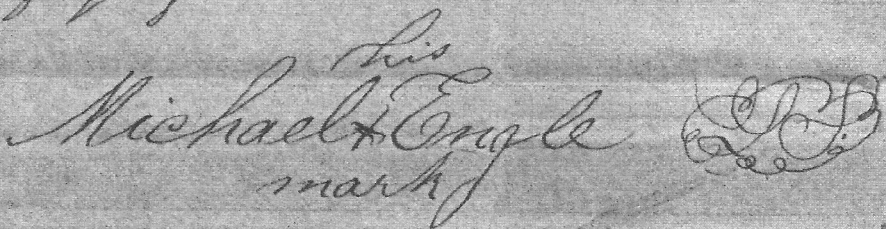 his
Michael X Engle
mark